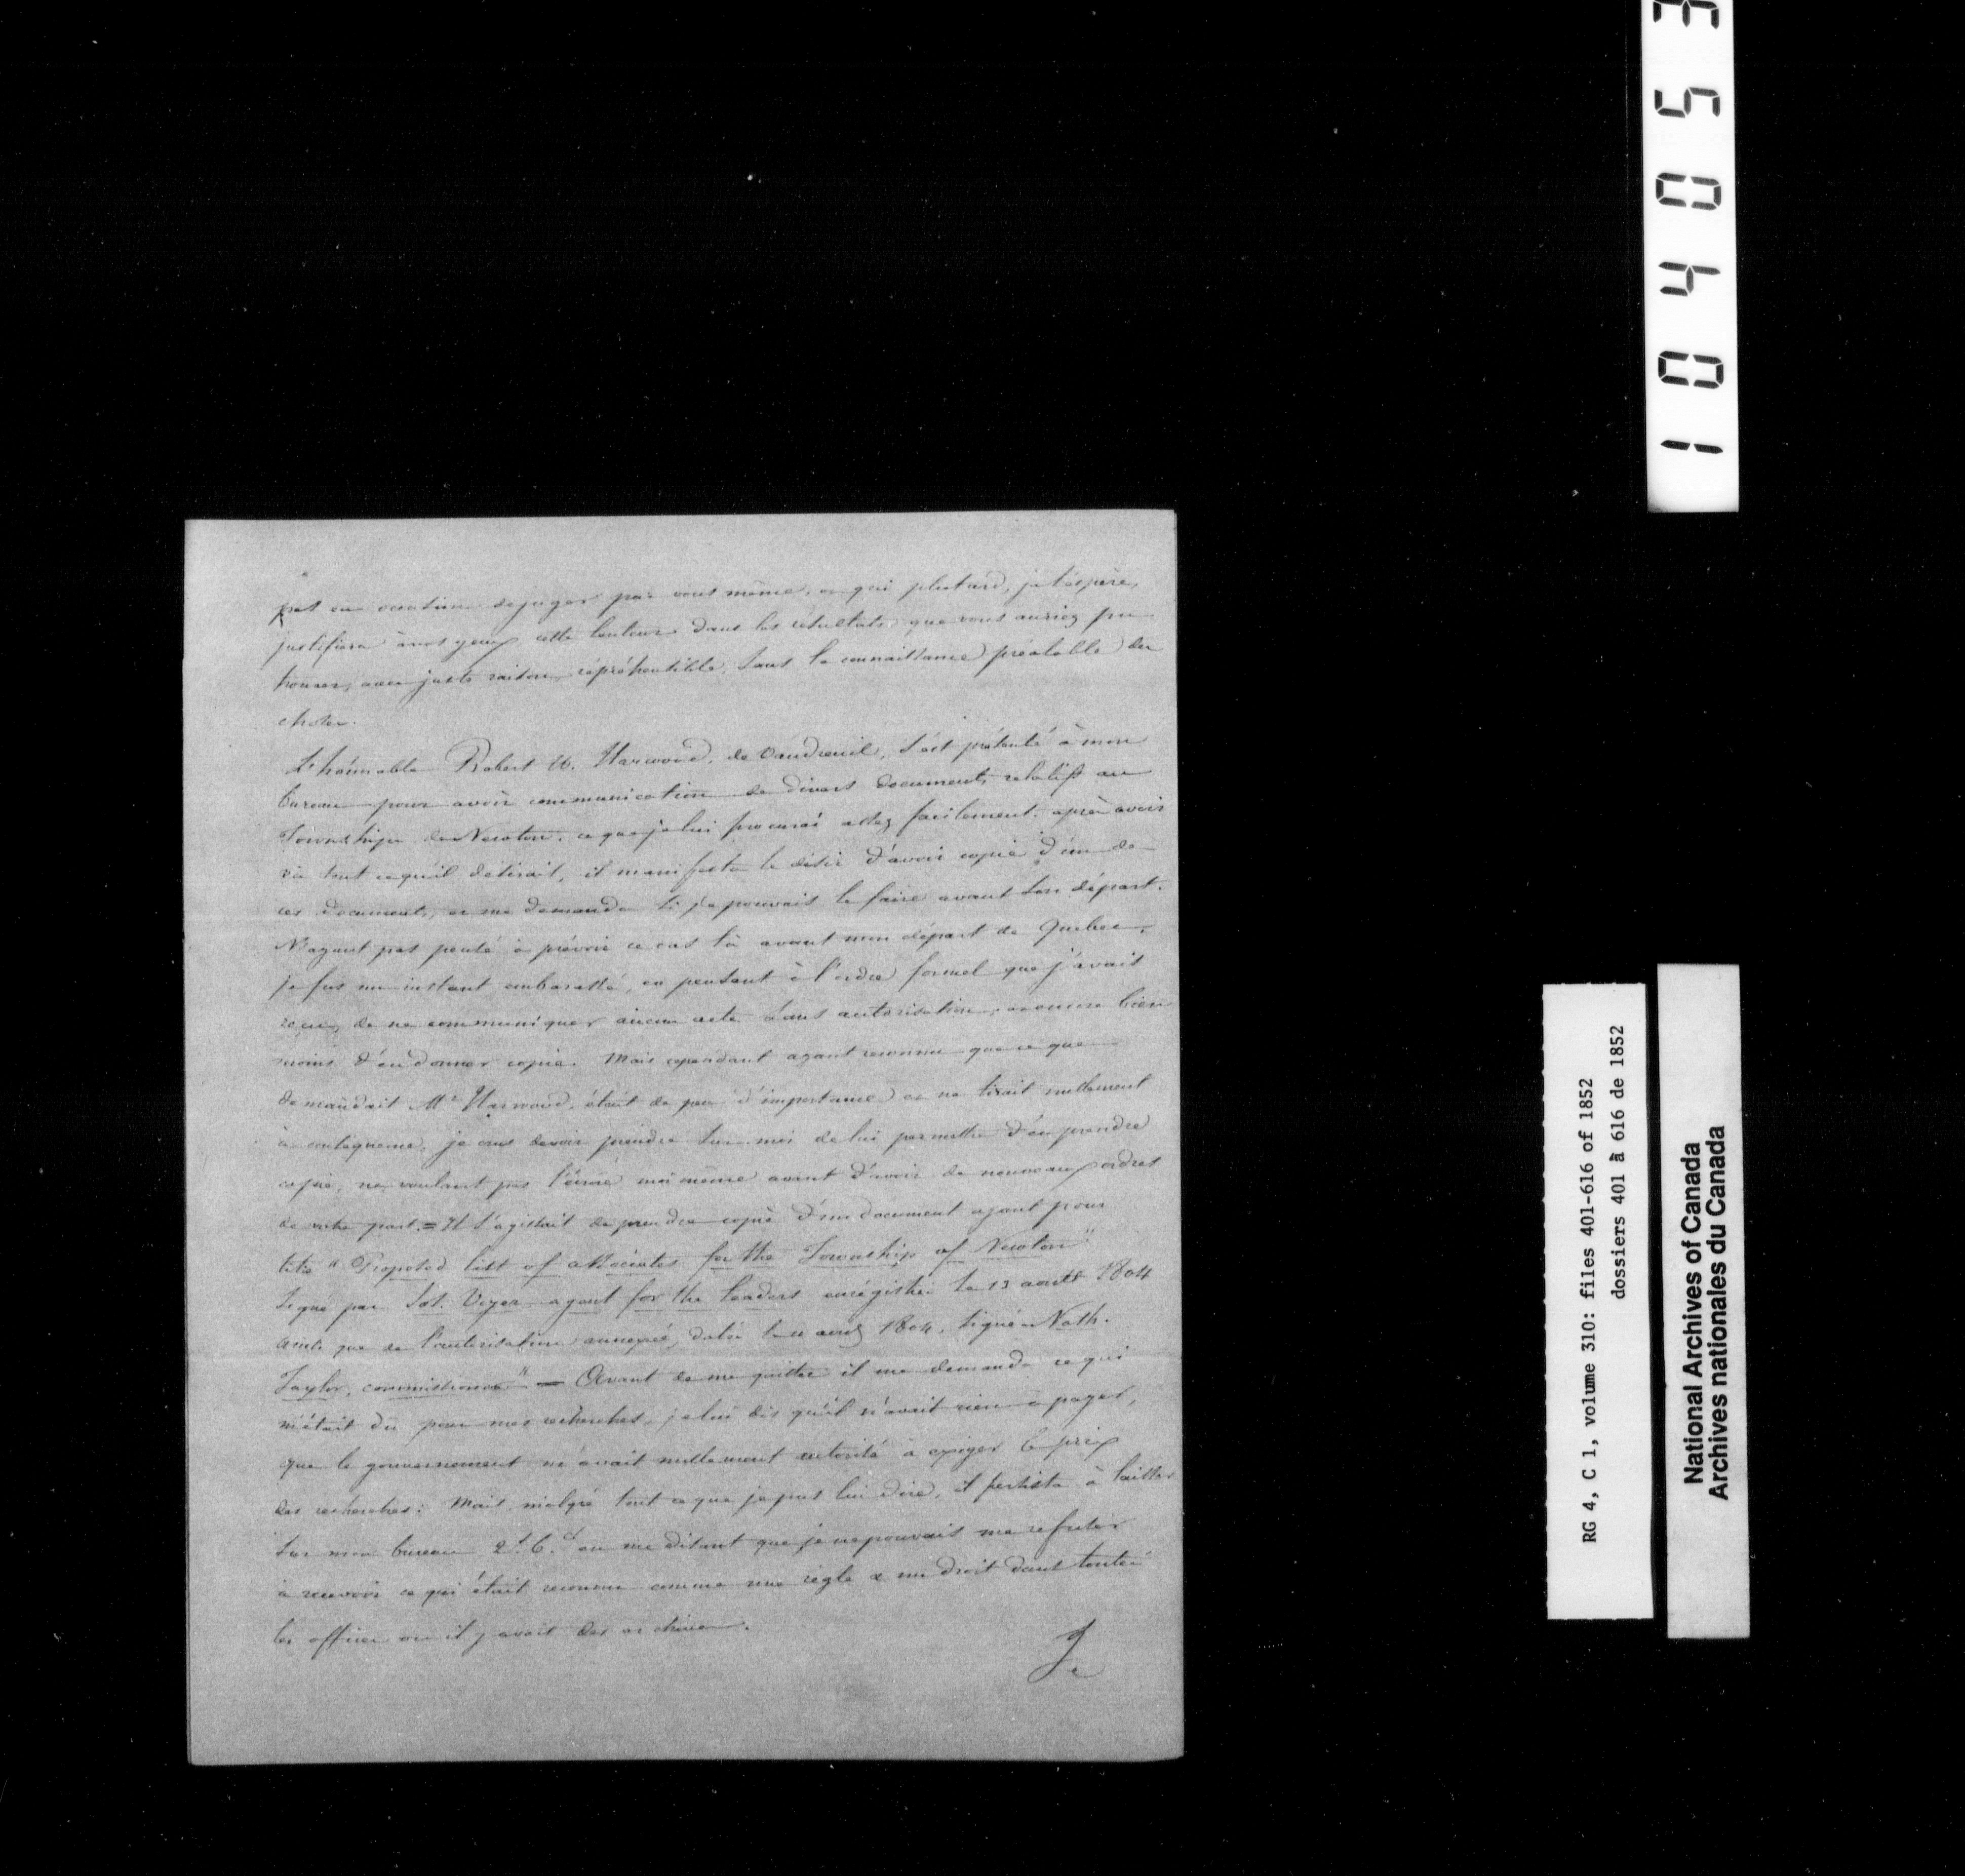 pas eu occasion de juger par vous même, ce qui plutard, je l'espère,
justifiera à vos yeux cette lenteur dans les résultats que vous auriez pu
trouver, avec juste raison, répréhensible, sans la connaissance préalable des
choses.
L'honorable Robert U. Harwood, de Vaudreuil, s'est présenté à mon
bureau pour avoir communication de divers documents relatifs au
Township de Newton, ce que je lui procurai assez facilement. après avoir
vu tout ce qu'il désirait, il manifesta le désir d'avoir copie d'un de
ces documents, et me demanda si je pouvais le faire avant son départ.
N'ayant pas pensé à prévoir ce cas là avant mon départ de Quebec,
je fus un instant embarassé, en pensant à l'ordre formel que j'avais
reçu, de ne communiquer aucun acte sans autorisation, encore bien
moins d'en donner copie. Mais cependant ayant reconnu que ce que
demandait Mr Harwood, était de peu d'importance et ne tirait nullement
à conséquence, je crus devoir prendre sur moi de lui permettre d'en prendre
copie, ne voulant pas l'écrire moi même avant d'avoir de nouveaux ordres
de votre part. = Il s'agissait de prendre copie d'un document ayant pour
titre "Proposed list of associates for the Township of Newton"
signé par Sat. Viger agent for the leaders enrégistré le 13 août 1804
ainsi que de l'autorisation annexée, datée le 11 août 1804, signée Nath.
Taylor, commissioner" = Avant de me quitter il me demanda ce qui
m'était dû pour mes recherches, je lui dis qu'il n'avait rien à payer,
que le gouvernement m'avait nullement autorisé à exiger le prix
des recherches: Mais malgré tout ce que je pus lui dire, il persista à laisser
sur mon bureau 2s. 6.d en me disant que je ne pouvais me refuser
à recevoir ce qui était reconnu comme une règle & un droit dans toutes
les offices où il y avait des archives.
Je
1 0 4 0 5 3
RG 4, C 1, volume 310: files 401-616 of 1852
dossiers 401 à 616 de 1852
National Archives of Canada
Archives nationales du Canada